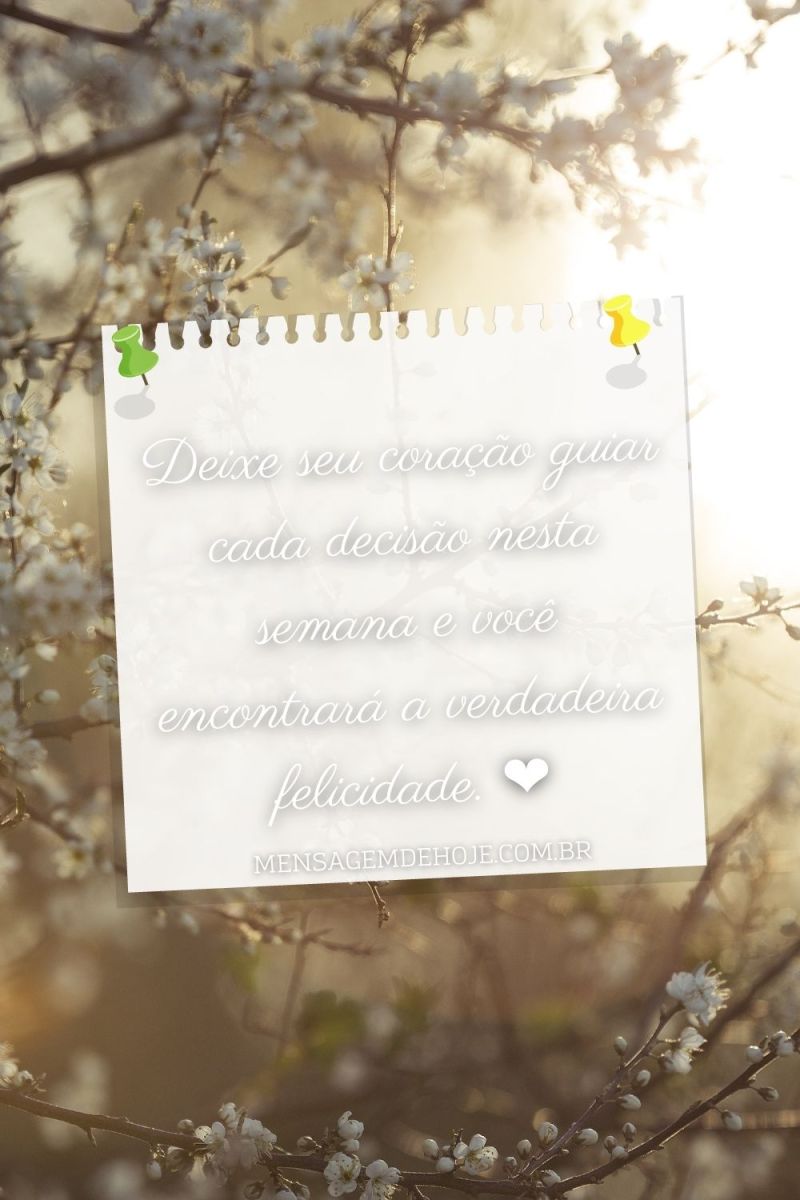 Deixe seu coração guiar
cada decisão nesta
semana e você
encontrará a verdadeira
felicidade. ❤
MENSAGEMDEHOJE.COM.BR